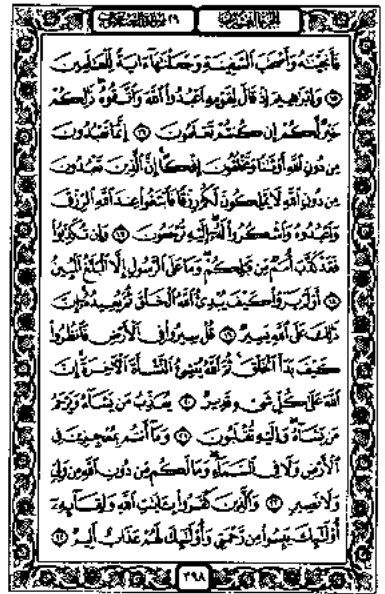 الجزء العشرون ٢٩ سورة العنكبوت
فَأَنجَيْنَٰهُ وَأَصْحَٰبَ ٱلسَّفِينَةِ وَجَعَلْنَٰهَآ ءَايَةً لِّلْعَٰلَمِينَ
١٥ وَإِبْرَٰهِيمَ إِذْ قَالَ لِقَوْمِهِ ٱعْبُدُوا۟ ٱللَّهَ وَٱتَّقُوهُ ذَٰلِكُمْ
خَيْرٌ لَّكُمْ إِن كُنتُمْ تَعْلَمُونَ ١٦ إِنَّمَا تَعْبُدُونَ
مِن دُونِ ٱللَّهِ أَوْثَٰنًا وَتَخْلُقُونَ إِفْكًا إِنَّ ٱلَّذِينَ تَعْبُدُونَ
مِن دُونِ ٱللَّهِ لَا يَمْلِكُونَ لَكُمْ رِزْقًا فَٱبْتَغُوا۟ عِندَ ٱللَّهِ ٱلرِّزْقَ
وَٱعْبُدُوهُ وَٱشْكُرُوا۟ لَهُۥٓ إِلَيْهِ تُرْجَعُونَ ١٧ وَإِن تُكَذِّبُوا۟
فَقَدْ كَذَّبَ أُمَمٌ مِّن قَبْلِكُمْ وَمَا عَلَى ٱلرَّسُولِ إِلَّا ٱلْبَلَٰغُ ٱلْمُبِينُ
١٨ أَوَلَمْ يَرَوْا۟ كَيْفَ يُبْدِئُ ٱللَّهُ ٱلْخَلْقَ ثُمَّ يُعِيدُهُۥٓ إِنَّ
ذَٰلِكَ عَلَى ٱللَّهِ يَسِيرٌ ١٩ قُلْ سِيرُوا۟ فِى ٱلْأَرْضِ فَٱنظُرُوا۟
كَيْفَ بَدَأَ ٱلْخَلْقَ ثُمَّ ٱللَّهُ يُنشِئُ ٱلنَّشْأَةَ ٱلْأَخِرَةَ إِنَّ
ٱللَّهَ عَلَىٰ كُلِّ شَىْءٍ قَدِيرٌ ٢٠ يُعَذِّبُ مَن يَشَآءُ وَيَرْحَمُ
مَن يَشَآءُ وَإِلَيْهِ تُقْلَبُونَ ٢١ وَمَآ أَنتُم بِمُعْجِزِينَ فِى
ٱلْأَرْضِ وَلَا فِى ٱلسَّمَآءِ وَمَا لَكُم مِّن دُونِ ٱللَّهِ مِن وَلِىٍّ
وَلَا نَصِيرٍ ٢٢ وَٱلَّذِينَ كَفَرُوا۟ بِـَٔايَٰتِ ٱللَّهِ وَلِقَآئِهِۦٓ
أُو۟لَٰٓئِكَ يَئِسُوا۟ مِن رَّحْمَتِى وَأُو۟لَٰٓئِكَ لَهُمْ عَذَابٌ أَلِيمٌ ٢٣
٣٩٨